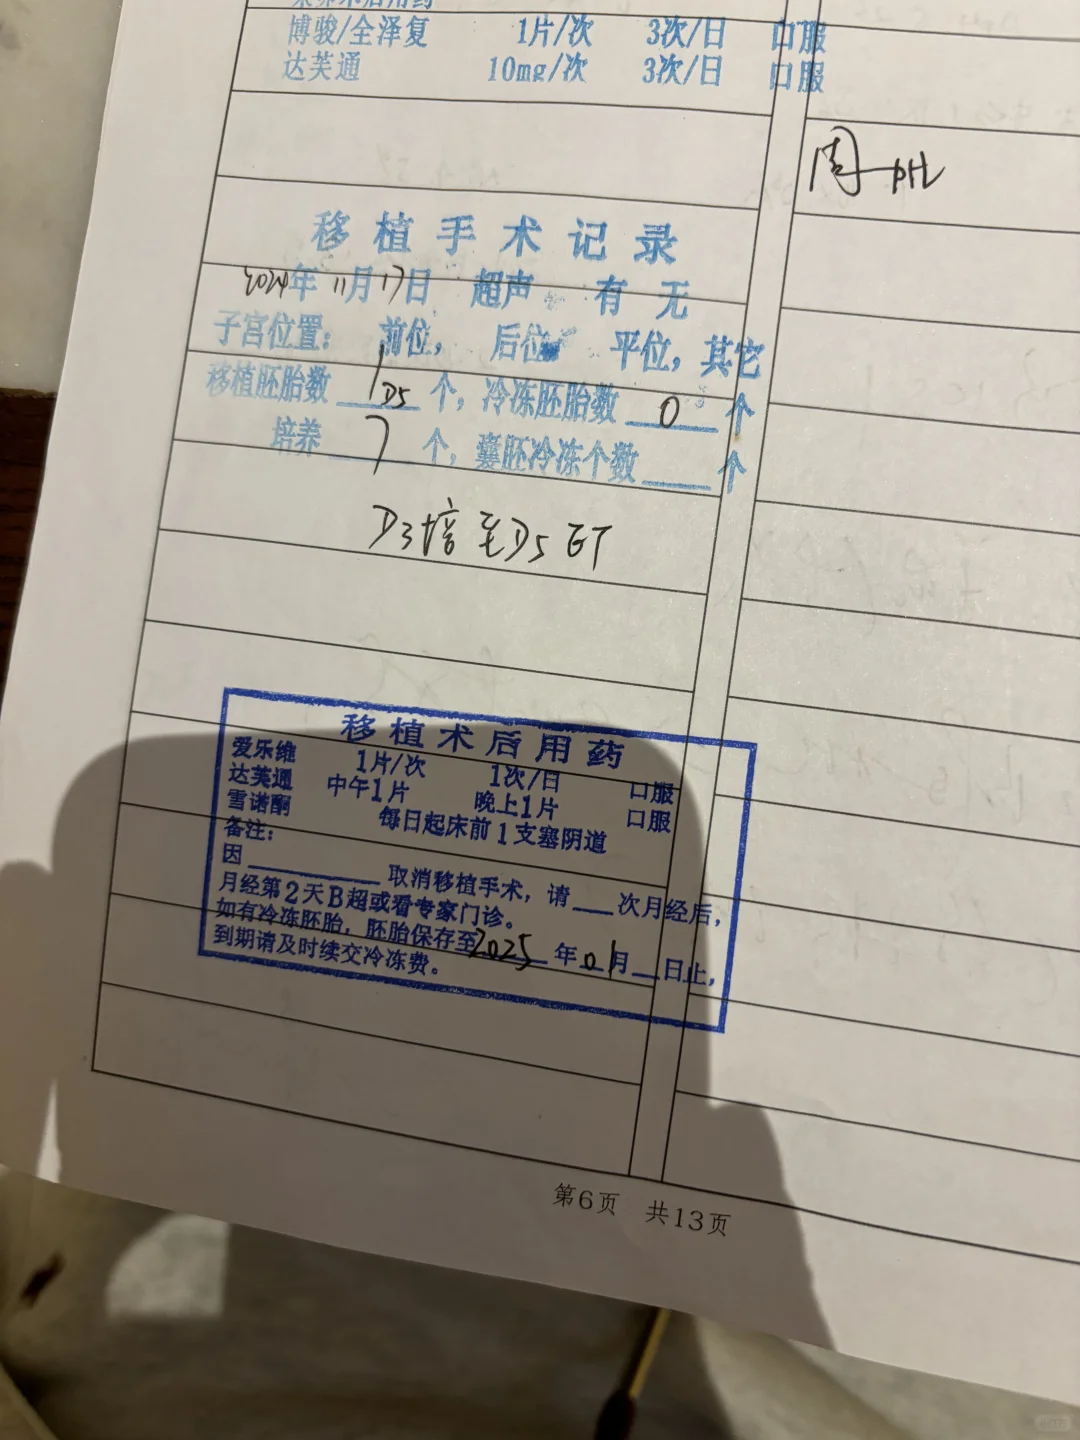 术后用药
博骏/全泽复 1片/次 3次/日 口服
达芙通 10mg/次 3次/日 口服
周
移植手术记录
2024年11月17日 超声 有 无
子宫位置: 前位, 后位 平位, 其它
移植胚胎数 1 D5 个, 冷冻胚胎数 0 个
培养 7 个, 囊胚冷冻个数 个
D3培至D5 ET
移植术后用药
爱乐维 1片/次 1次/日 口服
达芙通 中午1片 晚上1片 口服
雪诺酮 每日起床前1支塞阴道
备注:
因______取消移植手术, 请___次月经后,
月经第2天B超或看专家门诊。
如有冷冻胚胎, 胚胎保存至2025年01月__日止,
到期请及时续交冷冻费。
第6页 共13页